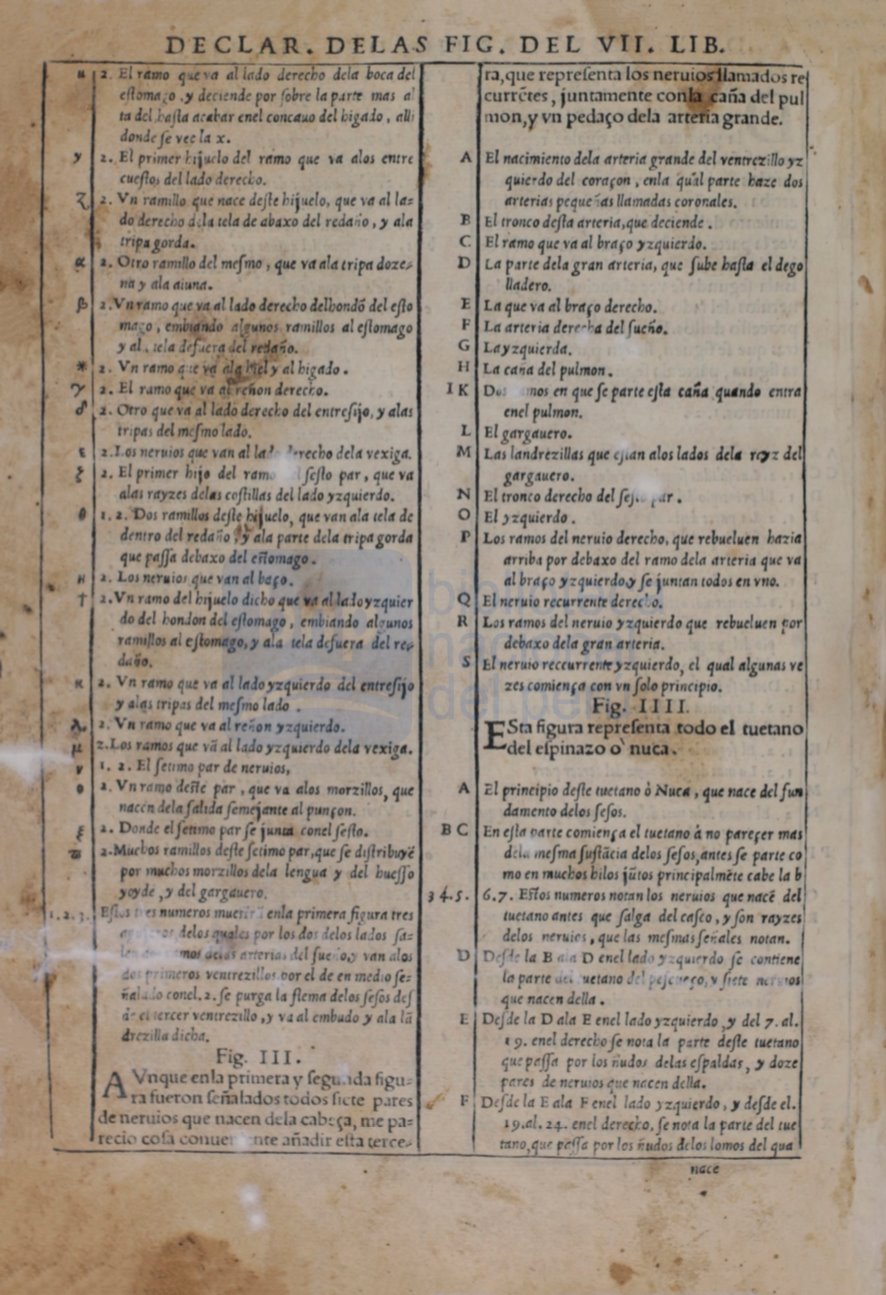 DECLAR. DELAS FIG. DEL VII. LIB.
u 2. El ramo que va al lado derecho dela boca del
eſtomago .y deciende por ſobre la parte mas al
ta del.haſta acabar enel concauo del higado, alli
donde ſe vee la x.
y 2. El primer hijuelo del ramo que va alos entre
cueſtos del lado derecho.
ζ 2. Vn ramillo que nace deſte hijuelo, que va al la-
do derecho dela tela de abaxo del redaño, y ala
tripa gorda.
α 2. Otro ramillo del meſmo, que va ala tripa doze-
na y ala aiuna.
β 2. Vn ramo que va al lado derecho delhondõ del eſto
mago, embiando algunos ramillos al eſtomago
y al tela defuera del redaño.
* 2. Vn ramo que va ala hiel y al higado.
γ 2. El ramo que va al reñon derecho.
♂ 2. Otro que va al lado derecho del entreſijo, y alas
tripas del meſmo lado.
ε 2. Los neruios que van al la recho dela vexiga.
ξ 2. El primer hijo del ram ſeſto par, que va
alas rayzes delas coſtillas del lado yzquierdo.
θ 1. 2. Dos ramillos deſte hijuelo, que van ala tela de
dentro del redaño y ala parte dela tripa gorda
que paſſa debaxo del eſtomago.
ϰ 2. Los neruios que van al baço.
† 2. Vn ramo del hijuelo dicho que va al lado yzquier
do del hondon del eſtomago, embiando algunos
ramillos al eſtomago, y ala tela defuera del re-
daño.
κ 2. Vn ramo que va al lado yzquierdo del entreſijo
y alas tripas del meſmo lado.
λ 2. Vn ramo que va al reñon yzquierdo.
μ 2. Los ramos que vã al lado yzquierdo dela vexiga.
ν 1. 2. El ſetimo par de neruios,
ο 2. Vn ramo deſte par, que va alos morzillos, que
nacen dela ſalida ſemejante al punçon.
ξ 2. Donde el ſetimo par ſe junta conel ſeſto.
ϖ 2. Muchos ramillos deſte ſetimo par, que ſe diſtribuyẽ
por muchos morzillos dela lengua y del hueſſo
yoyde, y del gargauero.
1. 2. 3. tres numeros enla primera figura tres
delos quales por los dos delos lados ſa-
arterias del ſueño, y van alos
dos primeros ventrezillos por el de en medio ſe-
ñalado conel. 2. ſe purga la flema delos ſeſos deſ
de el tercer ventrezillo, y va al embudo y ala lã
drezilla dicha.
Fig. III.
AVnque enla primera y ſegunda figu-
ra fueron ſeñalados todos ſiete pares
de neruios que nacen dela cabeça, me pa-
recio coſa conue nte añadir eſta terce-
ra, que repreſenta los neruios llamados re
currẽtes, juntamente conla caña del pul
mon, y vn pedaço dela arteria grande.
A El nacimiento dela arteria grande del ventrezillo yz
quierdo del coraçon, enla qual parte haze dos
arterias pequeñas llamadas coronales.
B El tronco deſta arteria, que deciende.
C El ramo que va al braço yzquierdo.
D La parte dela gran arteria, que ſube haſta el dego
lladero.
E La que va al braço derecho.
F La arteria derecha del ſueño.
G La yzquierda.
H La caña del pulmon.
I K Dos mos en que ſe parte eſta caña quando entra
enel pulmon.
L El gargauero.
M Las landrezillas que eſtan alos lados dela rayz del
gargauero.
N El tronco derecho del par.
O El yzquierdo.
P Los ramos del neruio derecho, que rebueluen hazia
arriba por debaxo del ramo dela arteria que va
al braço yzquierdo, y ſe juntan todos en vno.
Q El neruio recurrente derecho.
R Los ramos del neruio yzquierdo que rebueluen por
debaxo dela gran arteria.
S El neruio reccurrente yzquierdo, el qual algunas ve
zes comiença con vn ſolo principio.
Fig. IIII.
ESta figura repreſenta todo el tuetano
del eſpinazo o nuca.
A El principio deſte tuetano ò Nuca, que nace del fun
damento delos ſeſos.
B C En eſta parte comiença el tuetano à no pareçer mas
dela meſma ſuſtãcia delos ſeſos, antes ſe parte co
mo en muchos hilos jũtos principalmẽte cabe la b
3 4. 5. 6. 7. Eſtos numeros notan los neruios que nacẽ del
tuetano antes que ſalga del caſco, y ſon rayzes
delos neruios, que las meſmas ſeñales notan.
D Deſde la B ala D enel lado yzquierdo ſe contiene
la parte del tuetano del peſcueço, y ſiete neruios
que nacen della.
E Deſde la D ala E enel lado yzquierdo, y del 7. al.
19. enel derecho ſe nota la parte deſte tuetano
que paſſa por los ñudos delas eſpaldas, y doze
pares de neruios que nacen della.
F Deſde la E ala F enel lado yzquierdo, y deſde el.
19. al. 24. enel derecho. ſe nota la parte del tue
tano, que paſſa por los ñudos delos lomos del qua
nace